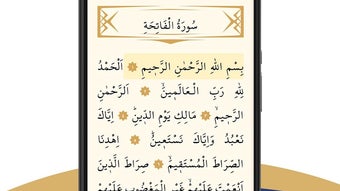 سُورَةُ الْفَاتِحَةِ
بِسْمِ اللهِ الرَّحْمٰنِ الرَّحِيمِ ۞ اَلْحَمْدُ
لِلّٰهِ رَبِّ الْعَالَمِينَۙ ۞ اَلرَّحْمٰنِ
الرَّحِيمِۙ ۞ مَالِكِ يَوْمِ الدِّينِۜ ۞ اِيَّاكَ
نَعْبُدُ وَاِيَّاكَ نَسْتَعِينُۜ ۞ اِهْدِنَا
الصِّرَاطَ الْمُسْتَقِيمَۙ ۞ صِرَاطَ الَّذِينَ
اَنْعَمْتَ عَلَيْهِمْ غَيْرِ الْمَغْضُوبِ عَلَيْهِمْ